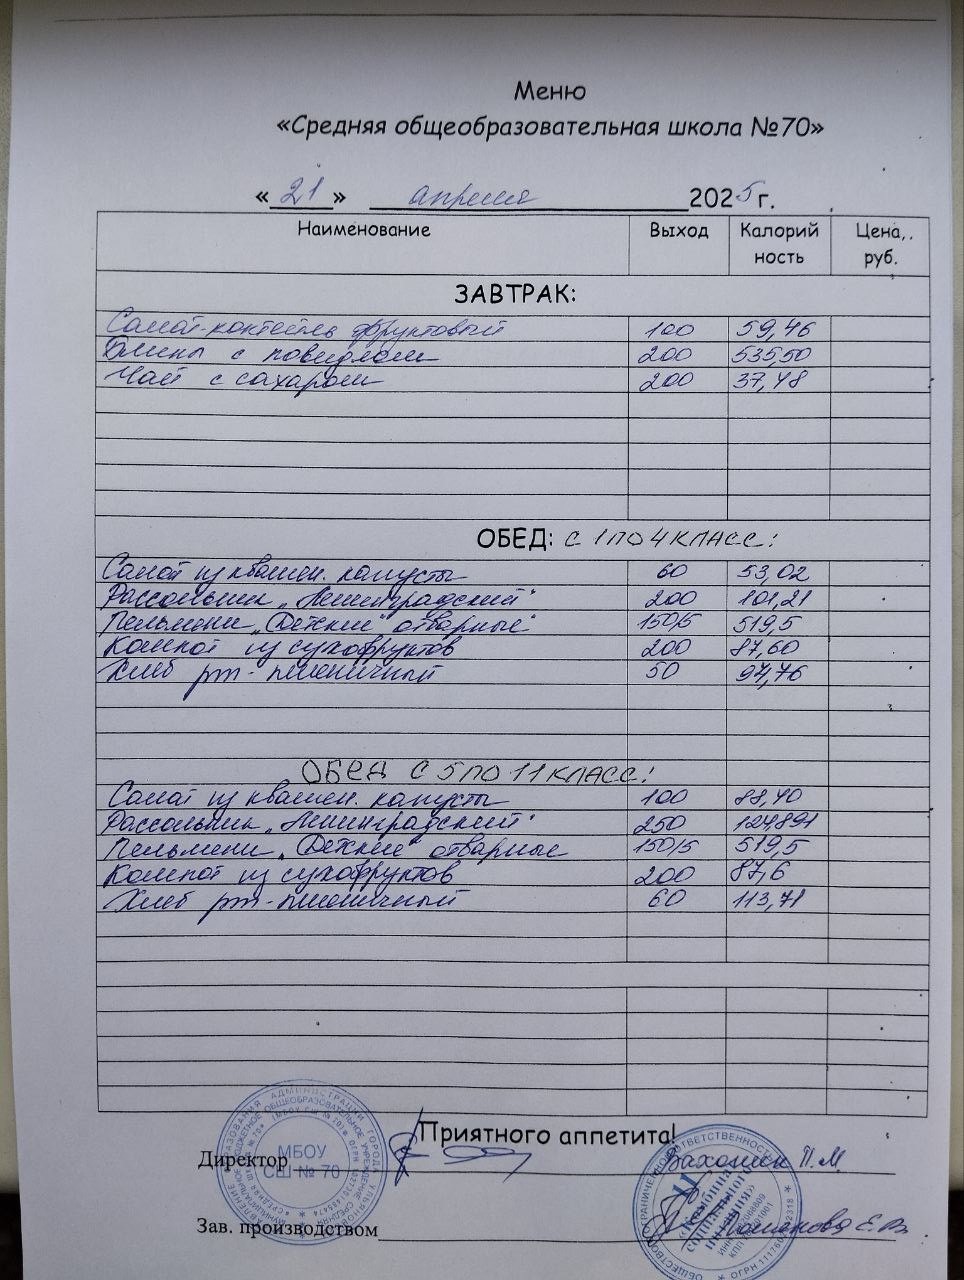 Меню
«Средняя общеобразовательная школа №70»
«21» апреля 2025 г.
Наименование Выход Калорийность Цена, руб.
ЗАВТРАК:
Салат-коктейль фруктовый 100 59,46
Блины с повидлом 200 535,50
Чай с сахаром 200 37,48
ОБЕД: С 1 ПО 4 КЛАСС:
Салат из квашен. капусты 60 53,02
Рассольник „Ленинградский" 200 101,21
Пельмени „Детские" отварные 150/5 519,5
Компот из сухофруктов 200 87,60
Хлеб рж-пшеничный 50 94,76
ОБЕД С 5 ПО 11 КЛАСС:
Салат из квашен. капусты 100 88,40
Рассольник „Ленинградский" 250
Пельмени „Детские" отварные 150/5 519,5
Компот из сухофруктов 200 87,6
Хлеб рж-пшеничный 60 113,71
Приятного аппетита!
МБОУ
СШ № 70
Директор П.М.
Зав. производством Е.В.
«Комбинат
социального
питания»